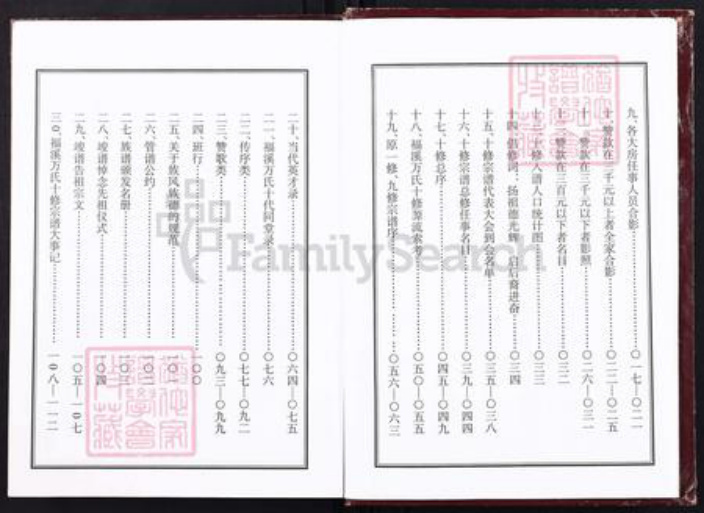 九、各大房任事人员合影……〇一七—〇二一
十、赞款在三千元以上者全家合影……〇二二—〇二五
十一、赞款在三千元以下者影照……〇二六—〇三一
十二、赞款在三百元以下者名目……〇三二
十三、十修入谱人口统计图……〇三三
十四、倡修词、扬祖德光辉、启后裔进奋……〇三四
十五、十修宗谱代表大会到会名单……〇三五—〇三八
十六、十修宗谱总修任事名目……〇三九—〇四四
十七、十修总序……〇四五—〇四九
十八、福溪万氏十修源流索考……〇五〇—〇五五
十九、原一修、九修宗谱序……〇五六—〇六三
二十、当代英才录……〇六四—〇七五
二一、福溪万氏十代同堂录……〇七六
二二、传序类……〇七七—〇九二
二三、赞歌类……〇九三—〇九九
二四、班行……一〇〇
二五、关于族风族德的规范
二六、管谱公约……一〇二
二七、族谱颁发名册……一〇三
二八、竣谱悼念先祖仪式……一〇四
二九、竣谱告祖宗文……一〇五—一〇七
三0、福溪万氏十修宗谱大事记……一〇八—一一二
FamilySearch